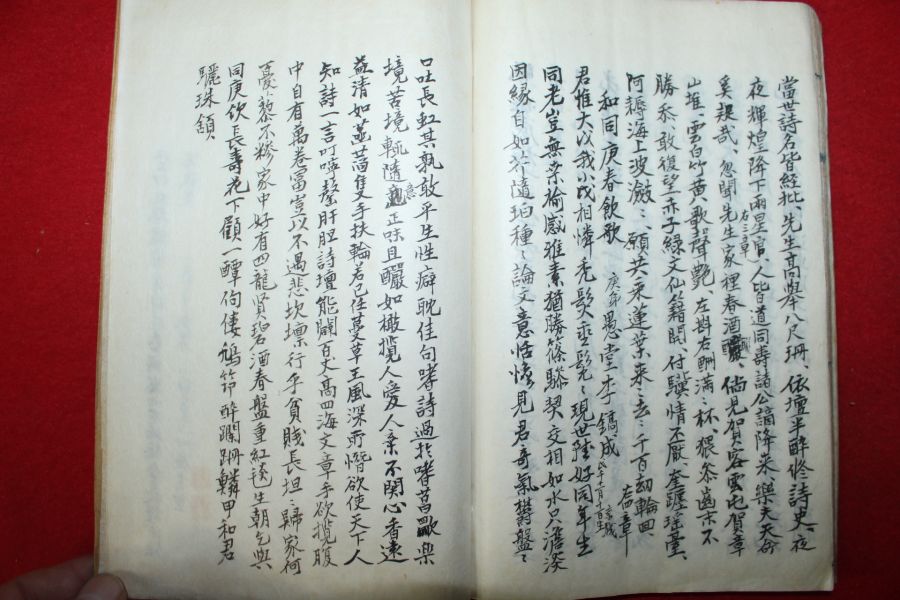 當世詩名皆經批、先生高擧八尺珊、依壇半醉修詩史、夜
夜輝煌降下兩星官、人皆道同壽諸公謫降來、樂夫天命
右三章
奚疑哉、忽聞先生家裡春酒 倘見賀客雲屯賀章
山堆、雪白竹黃歌聲艶、左斟右酬滿〻杯、猥參齒末不
勝 敢復望赤子綠文仙籍開、付驥情不厭、奎躔瑤臺、
阿耨海上波瀲〻、願共采蓮葉來〻去〻千百劫輪回、
右一章
和同庚春飮歌
庚年愚堂李鎬成
君惟大以我小戊相憐禿髮垂髫、現世陸好同年生
同老豈無桑楡感雅素猶勝篠驂契、交相如水只澹淡
因緣自如芥隨珀種〻論文意恬憺、見君奇氣鬱盤〻
口吐長虹其孰敢平生性癖耽佳句嗜詩過於嗜菖歜樂
境苦境輒隨意 正味且釅如橄攬人愛人棄不関心香遠
益清如菡萏隻手扶輪若已任蔓草王風深所憯欲使天下人
知詩一言叮嚀罄肝胆詩壇能闢百丈高四海文章手欲攬腹
中自有萬卷富豈以不遇悲坎壈行乎貧賤長坦〻歸家何
憂藜不糝家中好有四龍賢碧酒春盤重紅毯生朝乞與
同庚飮長壽花下顧一罈佝僂鳩笻醉蹣跚鱗甲和君
驪珠頷